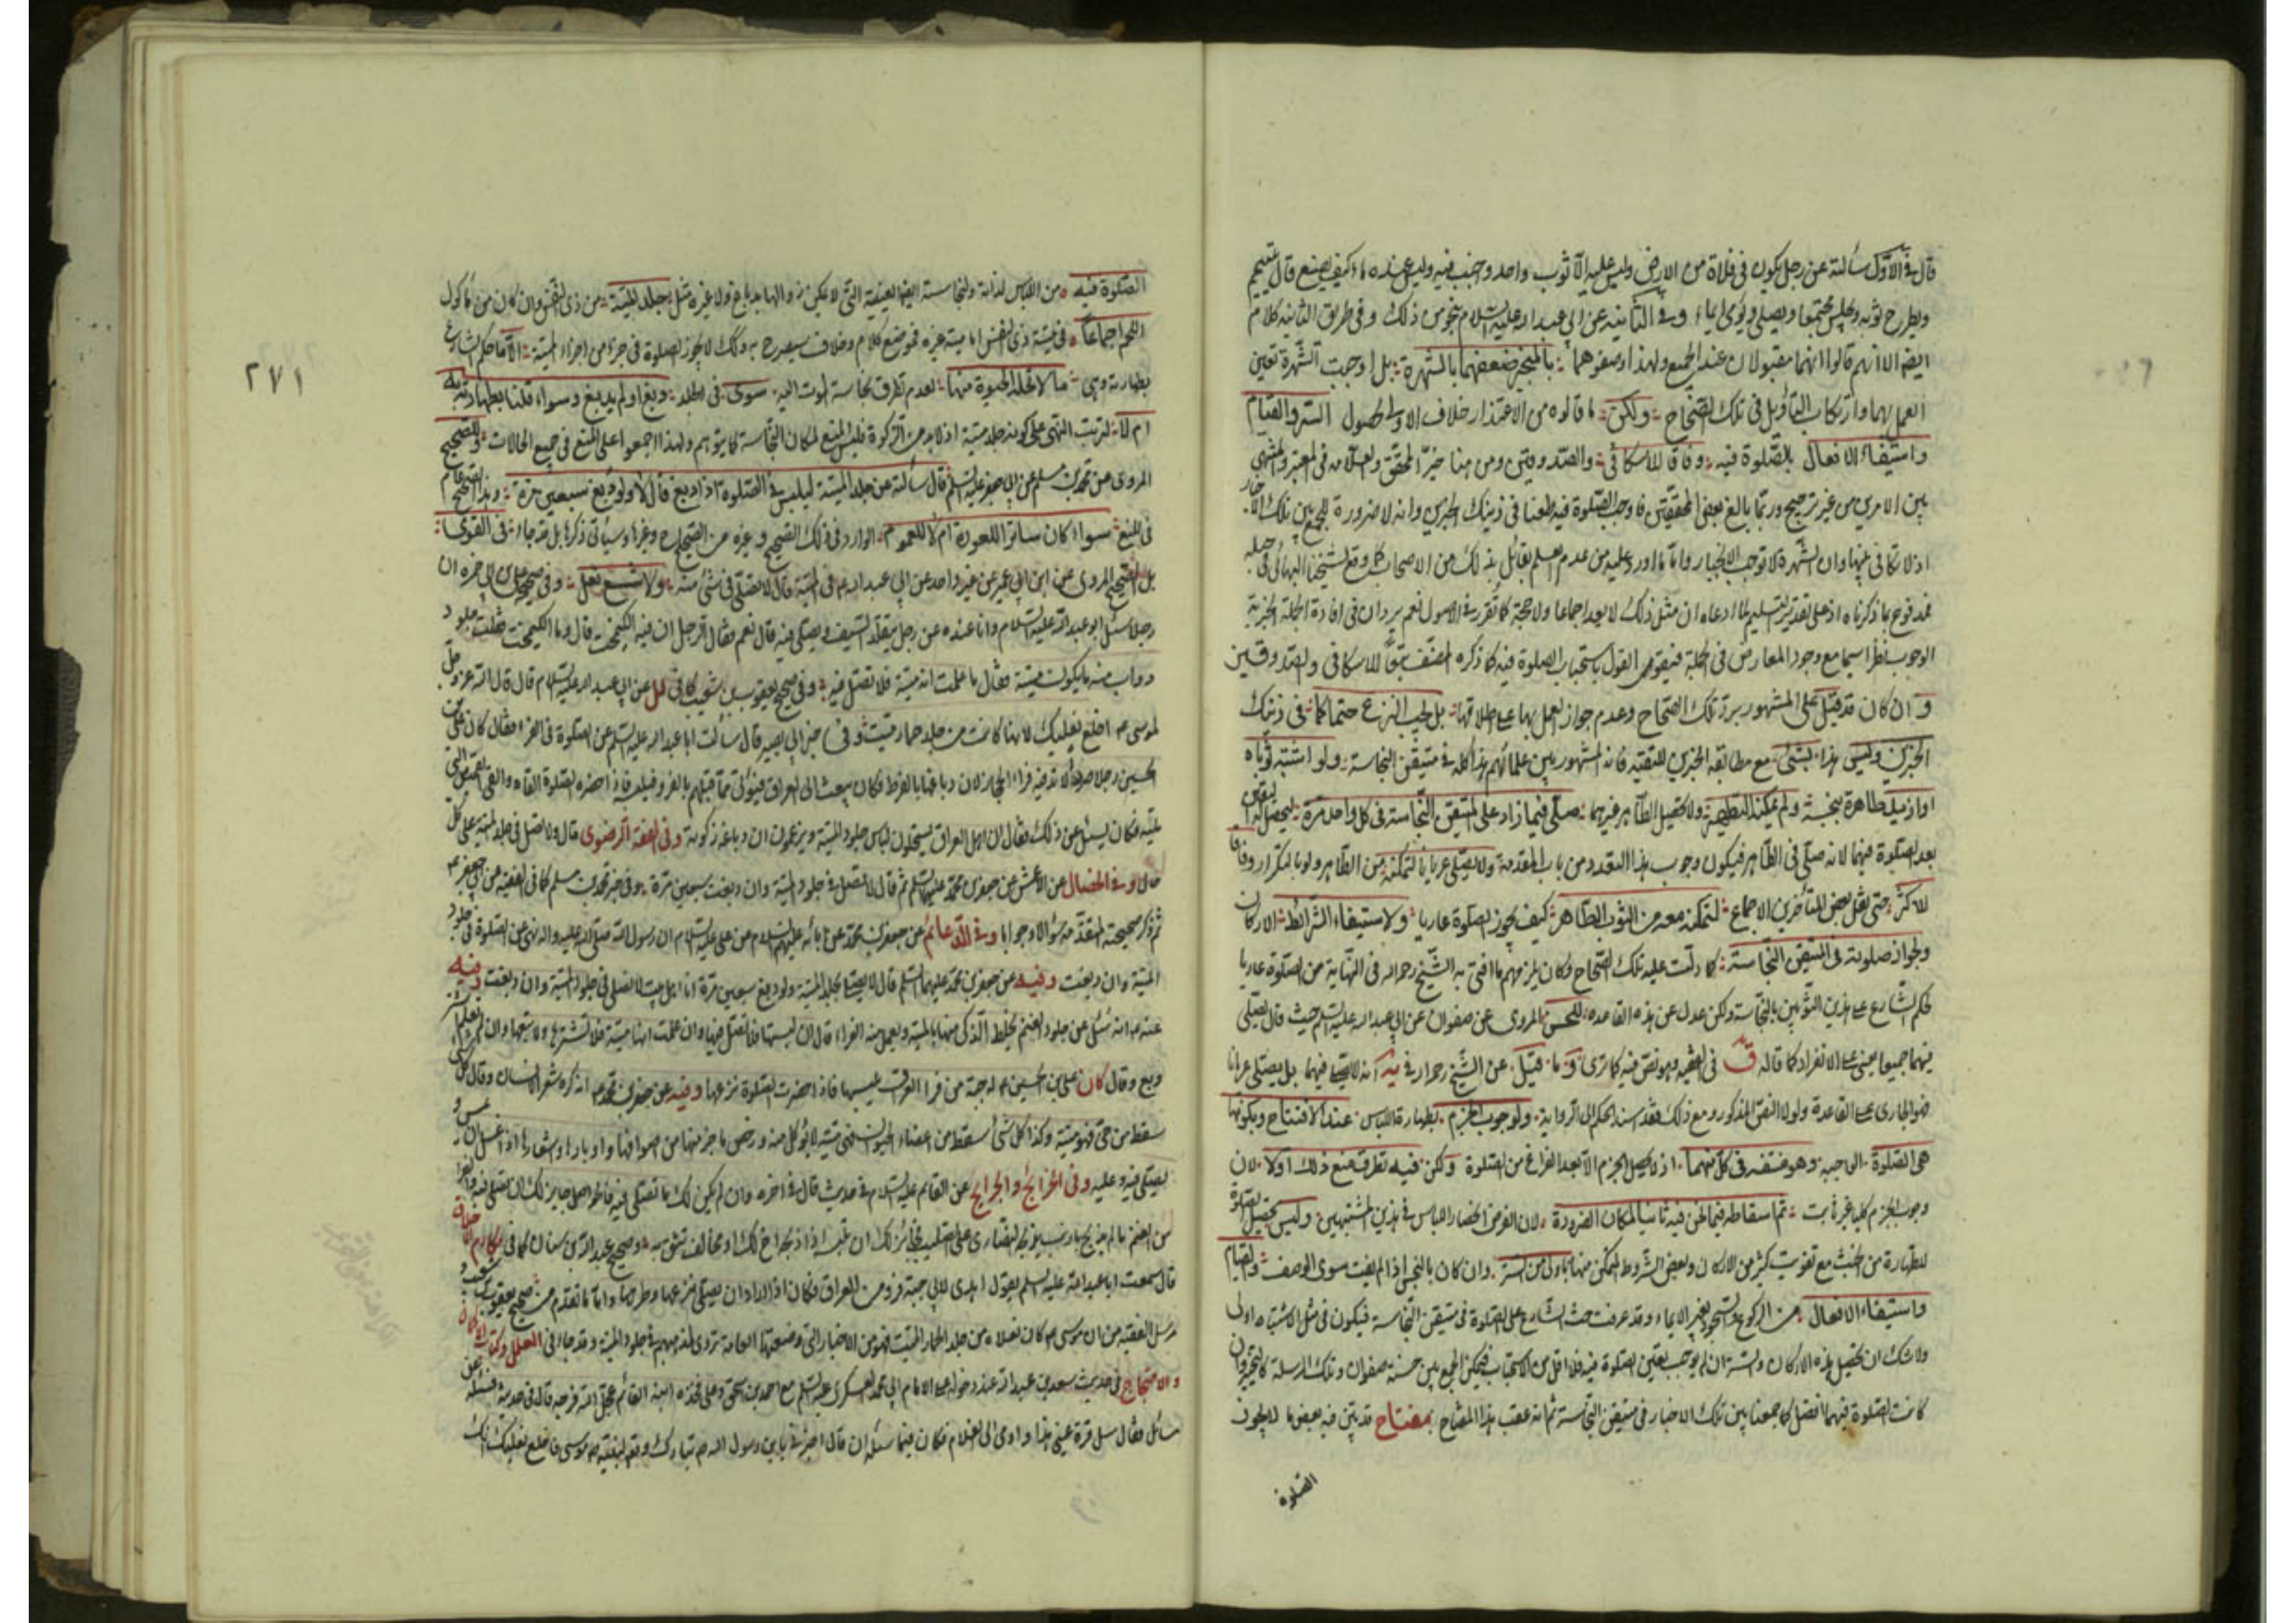 قال في الاوّل سألته عن رجل يكون في فلاة من الارض وليس عليه الّا ثوب واحد واجنب فيه وليس عنده ماء كيف يصنع قال يتيمم
ويطرح ثوبه ويجلس مجتمعا ويصلي ويومى ايماء وفي الثانية عن ابي عبد الله عليه السلام نحو من ذلك وفي طريق الثانية كلام
ايضا الا انهم قالوا انهما مقبولان عند الجميع ولهذا وصفوهما بالمنجبر ضعفهما بالشهرة بل اوجبت الشهرة تعين
العمل بهما وارتكاب التأويل في تلك الصّحاح ولكن ما قالوه من الاعتذار خلاف الاولى لحصول الستر والقيام
واستيفاء الافعال بالصّلوة فيه وفاقا للاسكافي والصّدوقين ومن هنا خيّر المحقق والعلامه في المعتبر والمنتهى
بين الامرين من غير ترجيح وربّما بالغ بعض المحققين فاوجب الصّلوة فيه طعنا في ذينك الخبرين وانه لا ضرورة للجمع بين تلك الاخبار
اذ لا تكافى بينها وان الشّهرة لا توجب الانجبار وامّا ما اورد عليه من عدم العلم بقائل بذلك من الاصحاب كما وقع لشيخنا البهائي في حبله
فمدفوع بما ذكرناه اذ على تقدير تسليم لما ادعاه ان مثل ذلك لا يعد اجماعا ولا حجة كما تقرر في الاصول نعم
الوجوب نظرا سيما مع وجود المعارض في الجملة فيقوى القول باستحباب الصلوة فيه كما ذكره المصنف تبعًا للاسكافي والصدوقين
وان كان قد قيل على المشهور برد تلك الصّحاح وعدم جواز العمل بها على اطلاقها بل يجب النزع حتما كما في ذينك
الخبرين وليس هذا بشئ مع مطابقة الخبرين للتقية فانه المشهور بين علمائهم هذا كله في متيقن النجاسة ولو اشتبه ثوباه
او ازيد طاهرة بنجسة ولم يمكنه التطهير ولا تحصيل الطّاهر غيرهما صلّى فيما زاد على المتيقن النّجاسة في كل واحد مرة ليحصل له اليقين
بعد الصّلوة فيهما لانه صلّى في الطّاهر فيكون وجوب هذا التعدد من باب المقدمة ولا يصلّي عريانا لتمكنه من الطّاهر ولو بالتكرار وفاقا
للاكثر حتى نقل بعض المتأخرين الاجماع لتمكنه معه من الثوب الطّاهر كيف يجوز الصلوة عاريا ولاستيفاء الشّرائط الاركان
ولجواز صلوته في المتيقن النّجاسة كما دلّت عليه تلك الصّحاح وكان يلزمهم ما افتى به الشّيخ رحمه الله في النهاية من الصلوة عاريا
لحكم الشّارع على هذين الثّوبين بالنّجاسة ولكن عدل عن هذه القاعدة للحسن المروي عن صفوان عن ابي عبد الله عليه السلم حيث قال يصلّي
فيهما جميعا يعني على الانفراد كما قاله ق في الفقيه وهو نص فيه كما ترى وما قيل عن الشّيخ في يه انه لا يصلي فيهما بل يصلّي عريانا
فهو الجارى على القاعدة ولولا النصّ المذكور ومع ذلك فقد اسند الحكم الى الرواية ولوجوب الجزم بطهارة اللباس عند الافتتاح وبكونها
هي الصّلوة الواجبة وهو منتف في كل منهما اذ لا يحصل الجزم الّا بعد الفراغ من الصّلوة ولكن فيه تطرق منع ذلك اولا لان
وجوب الجزم كليا غير ثابت ثم اسقاطه فيما نحن فيه ثانيا لمكان الضرورة لان الفرض انحصار اللباس في هذين المشتبهين وليس تحصيل الصّلوة
للطهارة من الخبث مع تفويت كثير من الاركان وبعض الشّروط المتمكن منها باولى من الستر وان كان بالنجس اذا لم يفت سوى الوصف والقيام
واستيفاء الافعال من الركوع والسّجود بغير الايماء وقد عرفت حث الشارع على الصّلوة في متيقن النّجاسة فيكون في مثل الاشتباه اولى
ولا شك ان تحصيل هذه الاركان والستر ان لم يوجب تعين الصّلوة فيه فلا اقل من الاستحباب فيمكن الجمع بين حسنة صفوان وتلك المرسلة
كانت الصّلوة فيهما افضل كما جمعنا بين تلك الاخبار في متيقن النّجاسة ثم انه عقب هذا المفتاح بمفتاح قد بيّن فيه بعض ما لا يجوز
الصّلوة
٢٧١
الصّلوة فيه من اللباس لذاته ولنجاسته ايضا العينية التي لا يمكن زوالها بدباغ ولا غيره مثل جلد الميتة من ذي النفس وان كان من مأكول
اللحم اجماعًا في ميتة ذي النفس اما ميتة غيره فموضع كلام وخلاف سيصرح به وكذلك لا يجوز الصلوة في جزء من اجزاء الميتة الّا ما حكم الشارع
بطهارته وهي ما لا تحله الحيوة منها لعدم تطرق نجاسة الموت اليه سوى في الجلد دبغ او لم يدبغ وسواء قلنا بطهارته به
ام لا لترتب النهي على كونه جلد ميتة اذ لا بد من الزكوة فليس المنع لمكان النجاسة كما يتوهم ولهذا اجمعوا على المنع في جميع الحالات للصحيح
المروى عن محمد بن مسلم عن ابي جعفر عليه السلم قال سألته عن جلد الميتة ايلبس في الصّلوة اذا دبغ قال لا ولو دبغ سبعين مرة وهذا الصحيح عام
في المنع سواء كان ساترا للعورة ام لا للعموم الوارد في ذلك الصحيح وغيره من الصّحاح وغيرها وسيأتي ذكرها بل قد جاء في القوى
بل الصّحيح المروى عن ابن ابي عمير عن غير واحد عن ابي عبد الله ع في الميتة قال لا تصلّ في شئ منه ولا شسع نعل وفي صحيح علي بن ابي حمزه ان
رجلا سئل ابو عبد الله عليه السلام وانا عنده عن رجل يتقلّد السّيف ويصلي فيه قال نعم فقال الرجل ان فيه الكيمخت قال وما الكيمخت فقلت جلود
دواب منه ما يكون ميتة فقال ما علمت انه ميتة فلا تصلّ فيه وفي صحيح يعقوب بن شعيب كما في لل عن ابي عبد الله عليه السلام قال قال الله عز وجلّ
لموسى ع اخلع نعليك لانها كانت من جلد حمار ميت وفي خبر ابي بصير قال سألت ابا عبد الله عليه السلم عن الصّلوة في الفراء فقال كان علي بن
الحسين رجلا صردا لا تدفئه فراء الحجاز لان دباغها بالقرظ فكان يبعث الى العراق فيؤتى ممّا قبلهم بالفرو فيلبسه فاذا حضره الصّلوة القاه والقى القميص الّذي
يليه فكان يسئل عن ذلك فقال ان اهل العراق يستحلون لباس جلود الميتة ويزعمون ان دباغه زكوته وفي الفقه الرضوى قال ولا تصل في جلد الميتة على كل
حال وفي الخصال عن الاعمش عن جعفر بن محمّد عليهما السّلم ثم قال لا تصل في جلود الميتة وان دبغت سبعين مرّة وفي خبر محمد بن مسلم كما في الفقيه عن ابي جعفر ع
ثم ذكر صحيحته المتقدّمة سؤالا وجوابا وفي الدّعائم عن جعفر بن محمّد عن آبائه عليهم السلام عن علي عليه السلام ان رسول الله صلّى الله عليه واله نهى عن الصّلوة في جلود
الميتة وان دبغت وفيه عن جعفر بن محمّد عليهما السلم قال لا يصلى بجلد الميتة ولو دبغ سبعين مرّة انا اهل بيت لا نصلي في جلود الميتة وان دبغت وفيه
عنه ع انه سئل عن جلود الغنم يختلط الذّكي منها بالميتة ويعمل منه الفراء قال ان لبستها فلا تصلّ فيها وان علمت انها ميتة فلا تشترها ولا تبعها وان لم تعلم اشتر
وبع وقال كان علي بن الحسين ع له جبة من فراء العراق يلبسها فاذا حضرت الصّلوة نزعها وفيه عن جعفر بن محمد ع انه كره شعر الانسان وقال كل شئ
سقط من حيّ فهو ميتة وكذا كل شئ سقط من اعضاء الحيوان فهي ميتة لا يؤكل منه ورخص ما جز منها من اصوافها واوبارها واشعارها اذا غسل ان يمس و
يصلّى فيه وعليه وفي الخرائج والجرايح عن القائم عليه السلام في حديث قال في آخره وان لم يكن لك ما تصلّي فيه فالحواصل جايز لك ان تصلي فيه والفراء
من الغنم ما لم يذبح بارمنية
مكارم الاخلاق
قال سمعت ابا عبد الله عليه السلم يقول اهدى لابي جبة فرو من العراق فكان اذا اراد ان يصلّي نزعها وطرحها وامّا ما تقدّم من صحيح يعقوب بن شعيب و
مرسل الفقيه من ان موسى ع كان نعلاه من جلد الحمار الميت فهو من الاخبار التي وضعتها العامة تروى لمذهبهم في جلود الميتة وقد جاء في العلل
والاحتجاج في حديث سعد بن عبد الله عند دخوله على الامام ابي محمد العسكرى عليه السلم مع احمد بن اسحق وعلى فخذه ابنه القائم عجل الله فرجه قال في حديثه
مسائل فقال سل قرة عيني هذا واومى الى الغلام فكان فيما سئله ان قال اخبرني يا بن رسول الله عن امر الله تبارك وتعالى لنبيه موسى فاخلع نعليك انك